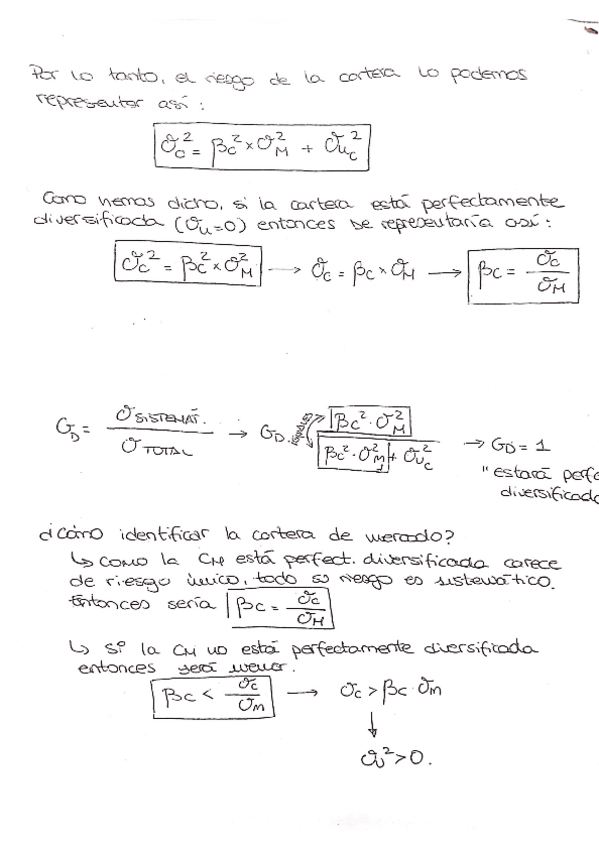 Por lo tanto, el riesgo de la cartera lo podemos
representar así :
σc² = βc² × σM² + σuc²
Como hemos dicho, si la cartera está perfectamente
diversificada (σu=0) entonces se representaría así :
σc² = βc² × σM² → σc = βc × σM → βc = σc / σM
GD = σ SISTEMÁT. / σ TOTAL → GD. βc² · σM² / βc² · σM² + σuc² → GD = 1
"estará perfe
diversificada
¿Cómo identificar la cartera de mercado?
↳ como la CM está perfect. diversificada carece
de riesgo único, todo su riesgo es sistemático.
Entonces sería βc = σc / σM
↳ Si la CM no está perfectamente diversificada
entonces será menor.
βc < σc / σm → σc > βc · σm
↓
σu² > 0.